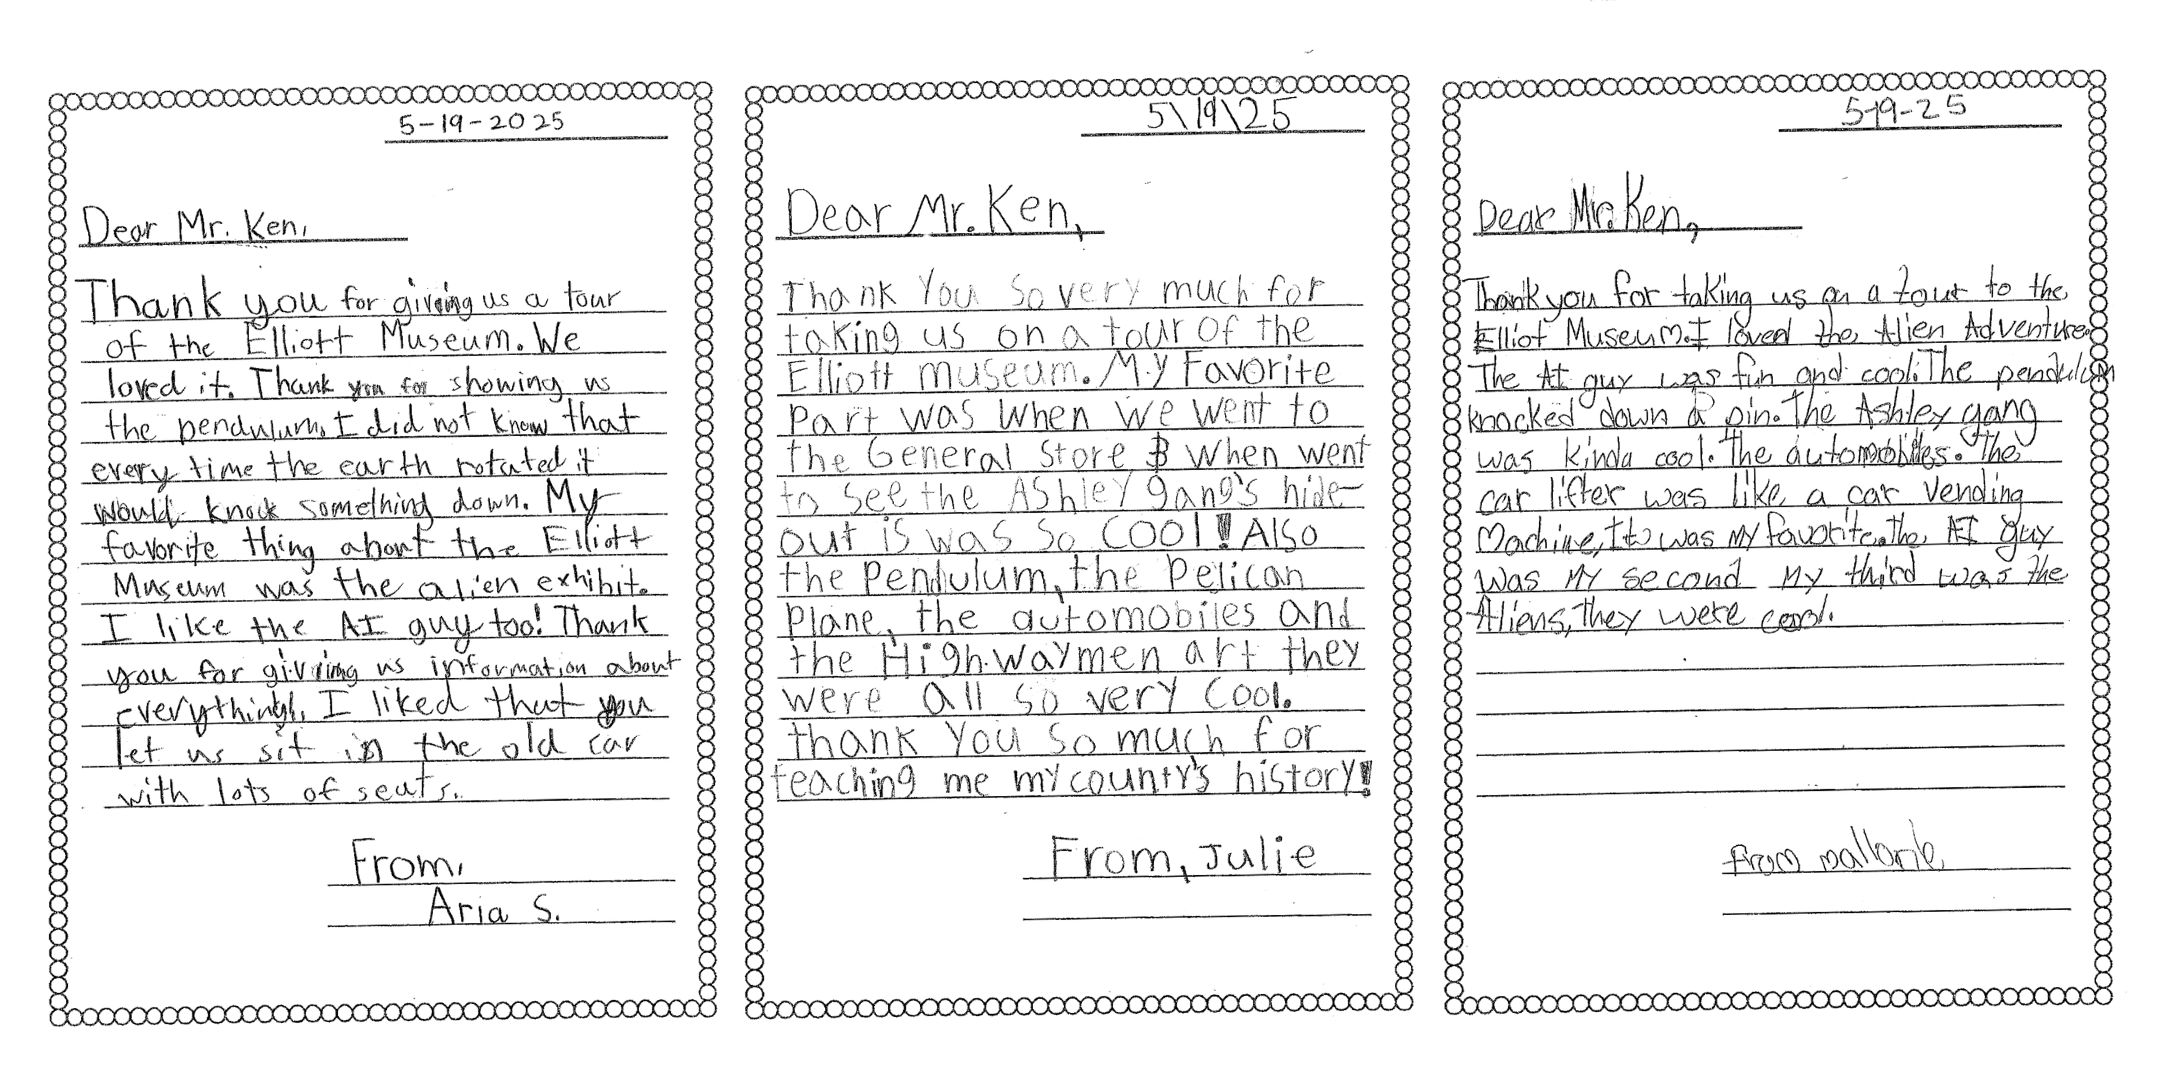 5-19-2025
Dear Mr. Ken,
Thank you for giving us a tour
of the Elliott Museum. We
loved it. Thank you for showing us
the pendulum. I did not know that
every time the earth rotated it
would knock something down. My
favorite thing about the Elliott
Museum was the alien exhibit.
I like the AI guy too! Thank
you for giving us information about
everything. I liked that you
let us sit in the old car
with lots of seats.
From,
Aria S.
5\19\25
Dear Mr. Ken,
Thank You so very much for
taking us on a tour of the
Elliott museum. My Favorite
Part was when we went to
the General Store & when went
to see the Ashley gang's hide-
out is was so cool! Also
the Pendulum, the Pelican
Plane, the automobiles and
the Highwaymen art they
were all so very cool.
thank You so much for
teaching me my county's history!
From, Julie
5-19-25
Dear Mr. Ken,
Thank you for taking us on a tour to the
Elliot Museum. I loved the Alien Adventure.
The AI guy was fun and cool. The pendulum
knocked down a pin. The Ashley gang
was kinda cool. The automobiles. The
car lifter was like a car vending
Machine, It was my favorite. The AI guy
was my second my third was the
Aliens, they were cool.
from